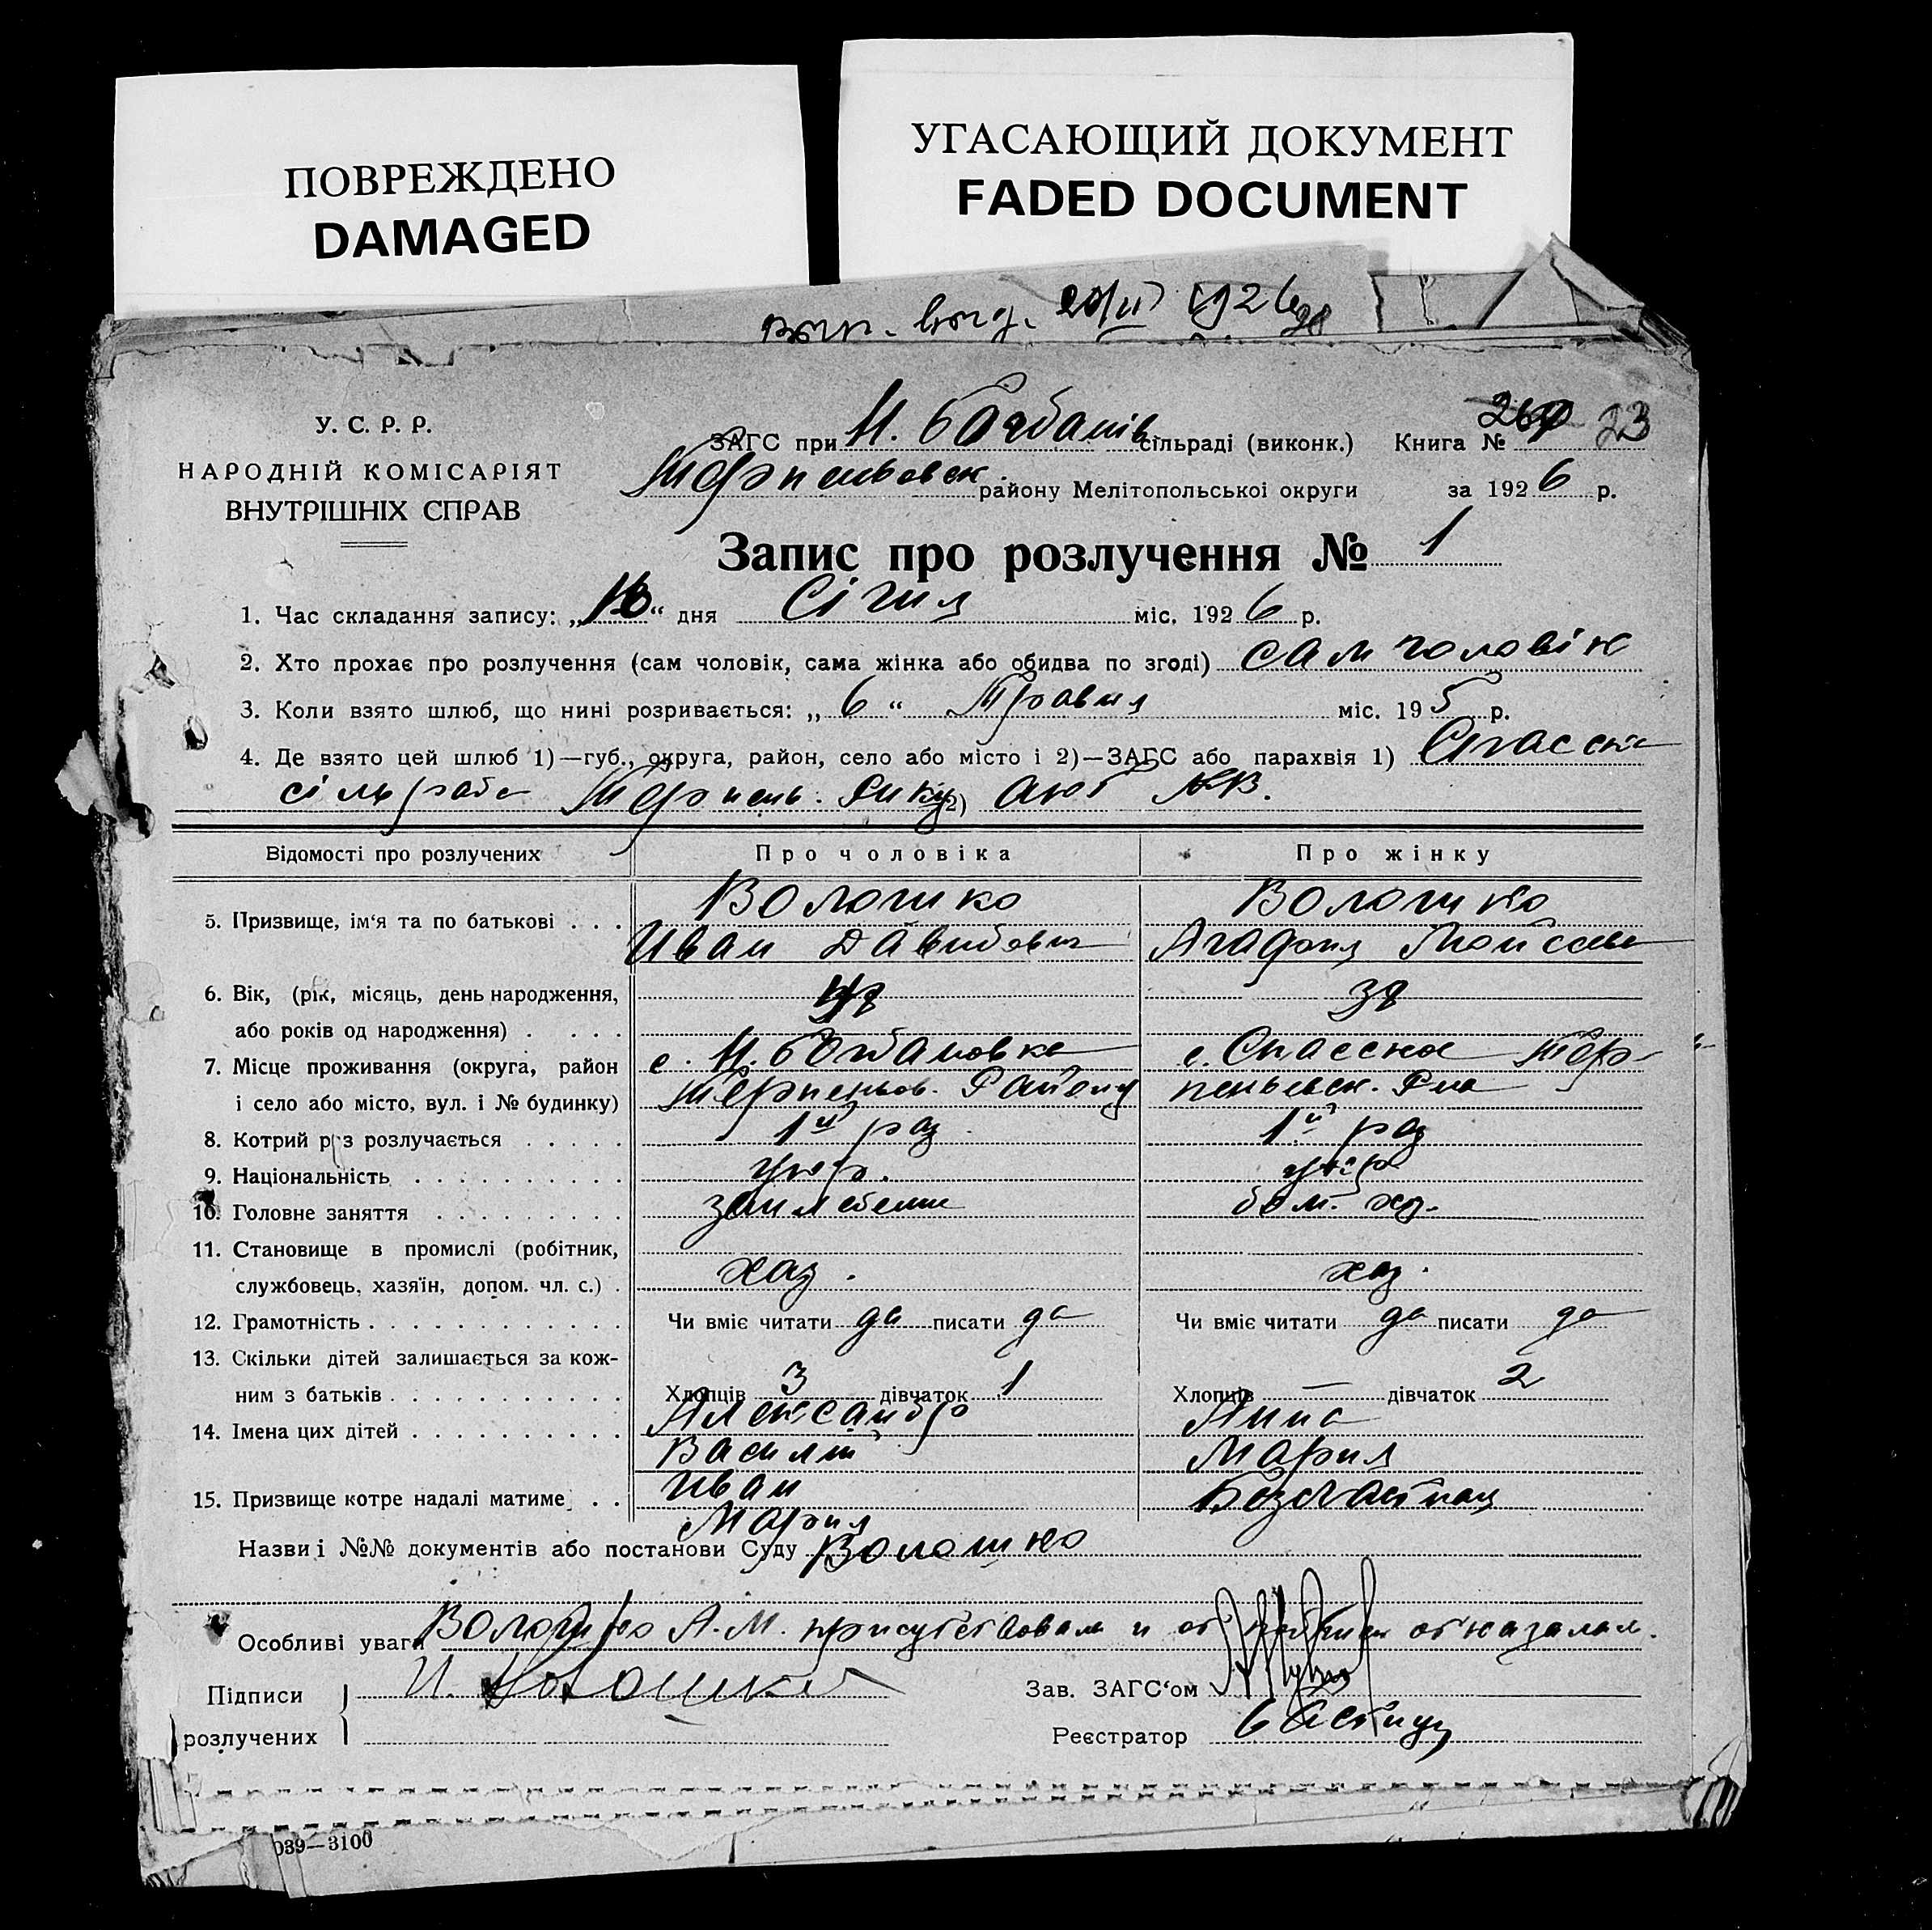 ПОВРЕЖДЕНО
DAMAGED
УГАСАЮЩИЙ ДОКУМЕНТ
FADED DOCUMENT
1926
У. С. Р. Р.
НАРОДНІЙ КОМІСАРІЯТ
ВНУТРІШНІХ СПРАВ
ЗАГС при Н. Богданів сільраді (виконк.) Книга № 23
Терпеньевск. району Мелітопольської округи за 1926 р.
Запис про розлучення № 1
1. Час складання запису: „ “ дня Січня міс. 1926 р.
2. Хто прохає про розлучення (сам чоловік, сама жінка або обидва по згоді) сам чоловік
3. Коли взято шлюб, що нині розривається: „ 6 “ Травня міс. 195 р.
4. Де взято цей шлюб 1)—губ., округа, район, село або місто і 2)—ЗАГС або парахвія 1) Спасска
сільрада Терпень. 2) акт
Відомості про розлучених Про чоловіка Про жінку
5. Призвище, ім‘я та по батькові . . . Волошко Волошко
Иван Давидович Агафия Мойсеев
6. Вік, (рік, місяць, день народження, 38
або років од народження) . . . . .
7. Місце проживання (округа, район с. Н. Богдановка с. Спасское Тер-
і село або місто, вул. і № будинку) Терпеньов. Району пеньевск. Р-на
8. Котрий раз розлучається . . . . . 1й раз 1й раз
9. Національність . . . . . . . . . . укр. укр
10. Головне заняття . . . . . . . . . дом. хоз.
11. Становище в промислі (робітник,
службовець, хазяїн, допом. чл. с.) . хаз. хаз.
12. Грамотність . . . . . . . . . . . . Чи вміє читати да писати да Чи вміє читати да писати да
13. Скільки дітей залишається за кож-
ним з батьків . . . . . . . . . . . Хлопців 3 дівчаток 1 Хлопців — дівчаток 2
14. Імена цих дітей . . . . . . . . . . Александр Анна
Василий Мария
15. Призвище котре надалі матиме . . Иван Безчастная
Мария
Назви і №№ документів або постанови Суду Волошко
Особливі уваги Волошко А. М. присутствовала и от подписи отказалась.
Підписи И. Волошко Зав. ЗАГС‘ом
розлучених Реєстратор
039—3100